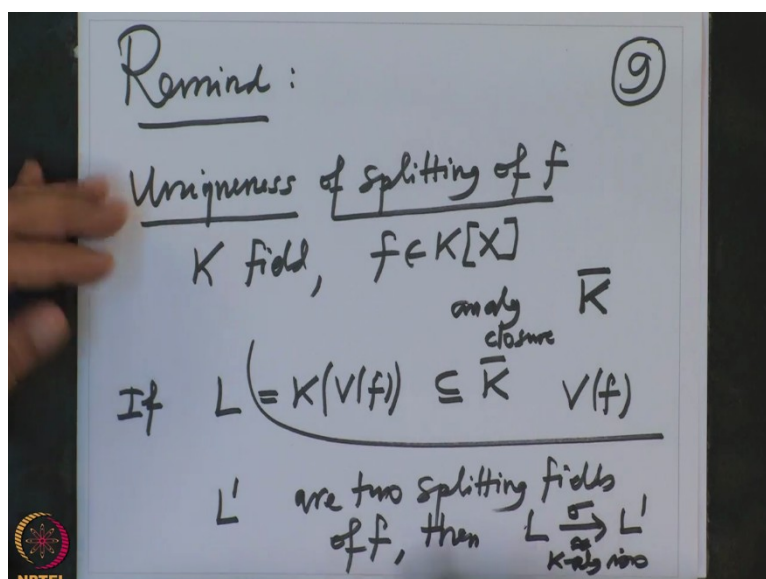 Remind : 9
Uniqueness of splitting of f
K field, f ∈ K[X]
an alg closure K̅
If L = K(V(f)) ⊆ K̅ V(f)
L' are two splitting fields
of f, then L σ→≈ L'
K-alg iso
NPTEL